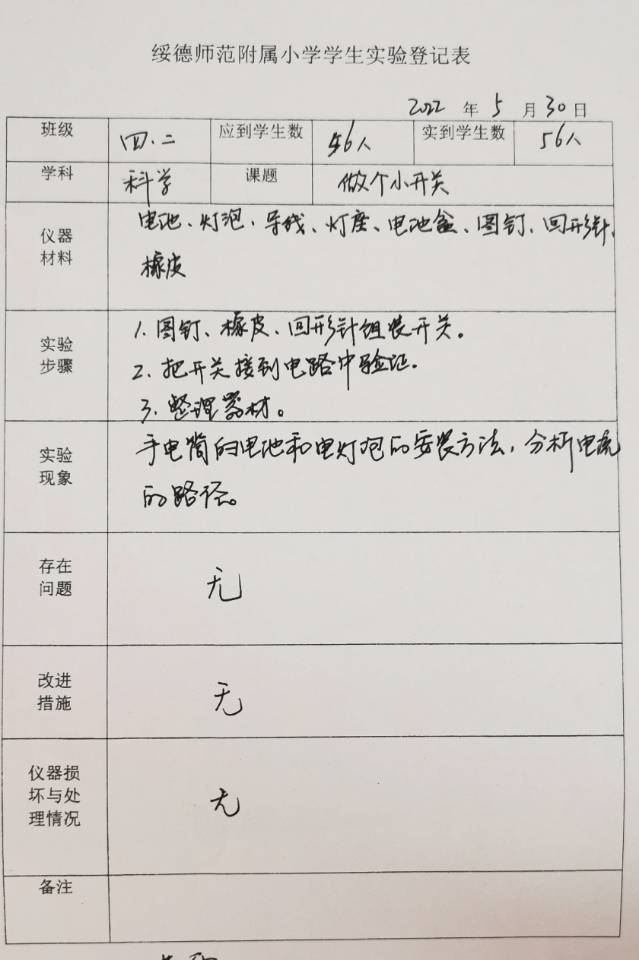 绥德师范附属小学学生实验登记表
2022 年 5 月 30 日
班级 四.二 应到学生数 56人 实到学生数 56人
学科 科学 课题 做个小开关
仪器
材料
电池、灯泡、导线、灯座、电池盒、图钉、回形针、
橡皮
实验
步骤
1. 图钉、橡皮、回形针组装开关。
2. 把开关接到电路中验证.
3. 整理器材。
实验
现象
手电筒的电池和电灯泡的安装方法，分析电流
的路径。
存在
问题
无
改进
措施
无
仪器损
坏与处
理情况
无
备注